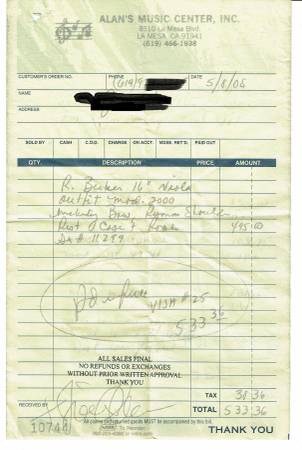 ALAN'S MUSIC CENTER, INC.
8510 La Mesa Blvd.
LA MESA, CA 91941
(619) 466-1938
CUSTOMER'S ORDER NO. PHONE (619) DATE 5/8/06
NAME
ADDRESS
SOLD BY CASH C.O.D. CHARGE ON ACCT. MDSE. RET'D. PAID OUT
QTY. DESCRIPTION PRICE AMOUNT
R. Becker 16" Viola
outfit Mod. 2000
Including Bow, Shoulder
Rest, Case & Rosin 495.00
Se# 11299
Pd in full VISA #25
533 36
ALL SALES FINAL
NO REFUNDS OR EXCHANGES
WITHOUT PRIOR WRITTEN APPROVAL
THANK YOU
TAX 38 36
RECEIVED BY
TOTAL 533.36
All claims and returned goods MUST be accompanied by this bill.
THANK YOU